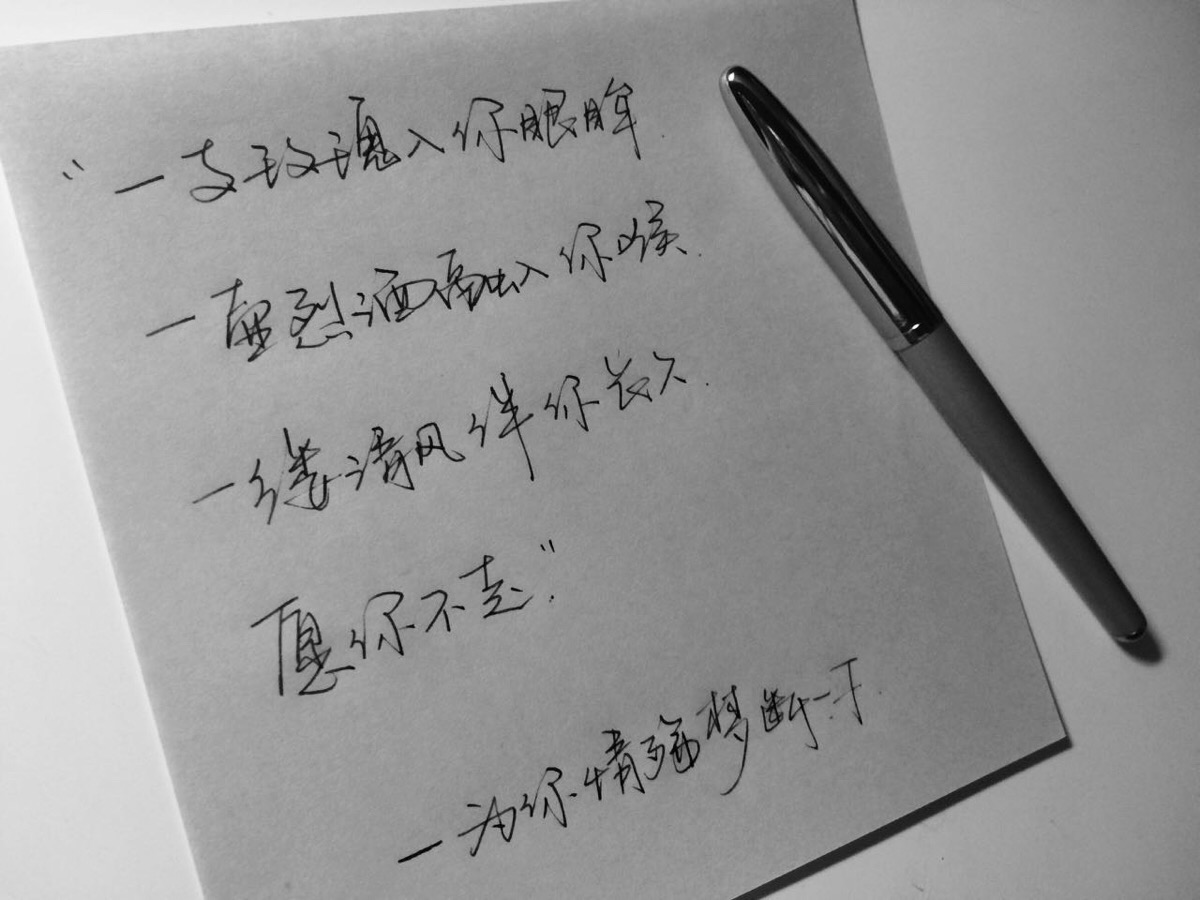 “一支玫瑰入你眼眸.
一壶烈酒隔出入你喉.
一缕清风伴你长久.
愿你不走”.
一为你.情殇梦断于.